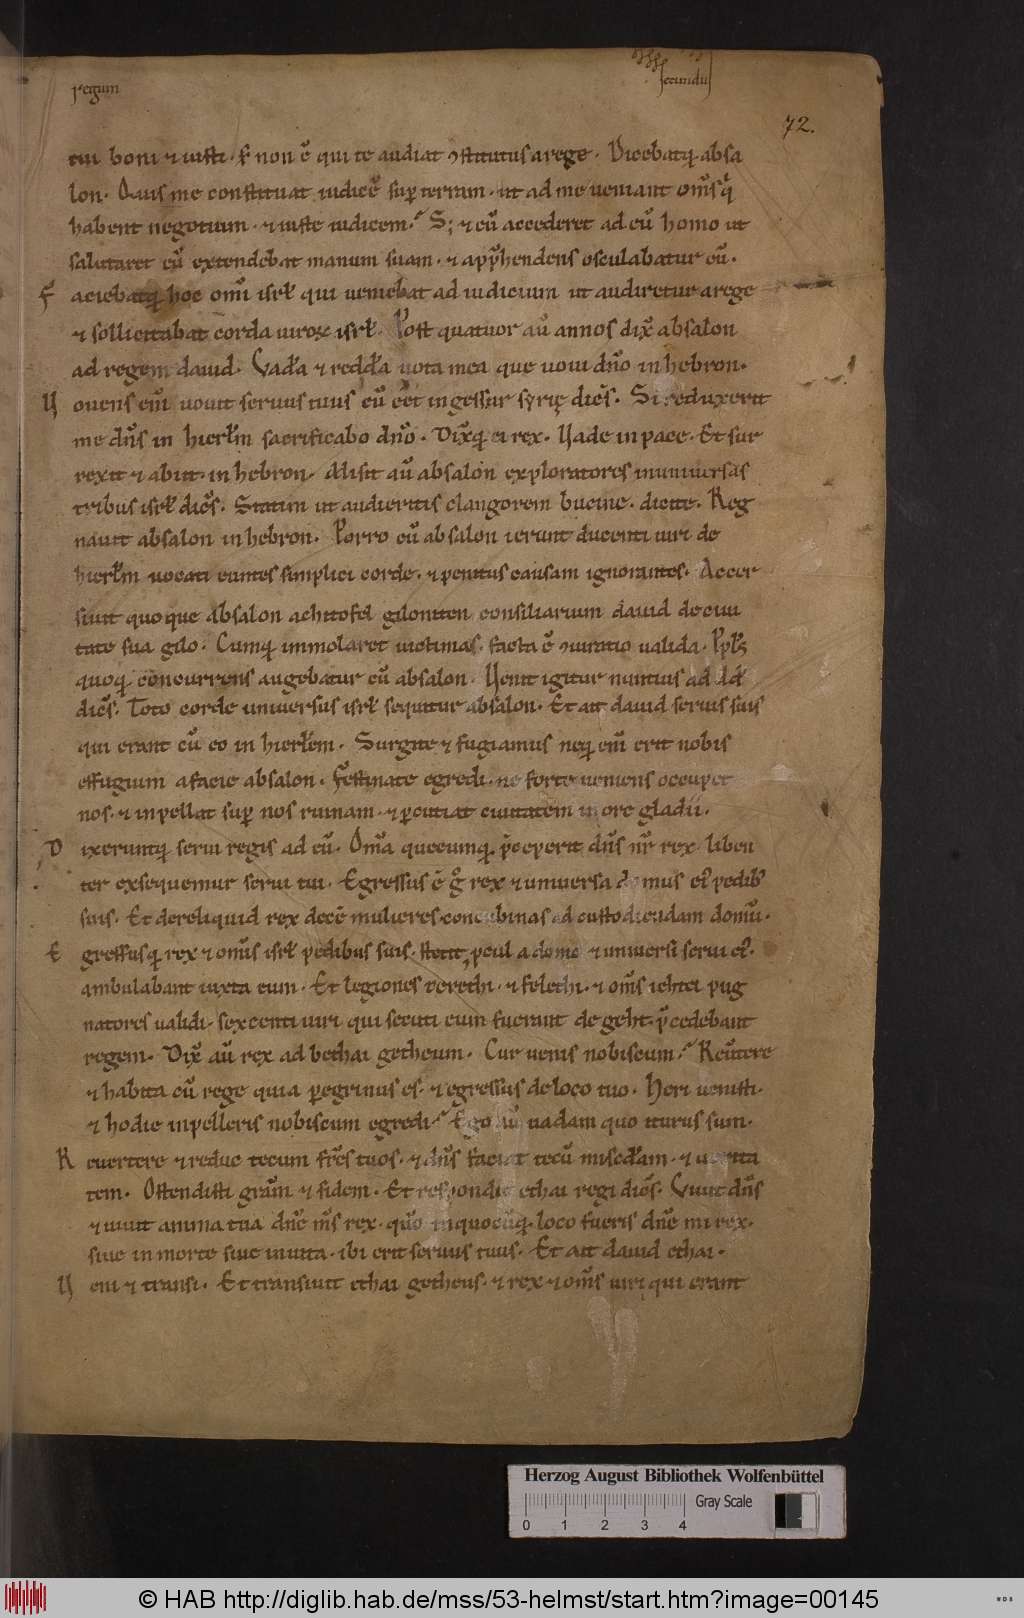 regum
secundus
72.
tui boni ⁊ iusti. s; non ē qui te audiat ꝯstitutus a rege. Dicebatq; absa
lon. Quis me constituat iudicē sup terram. ut ad me ueniant om̄s q̄
habent negotium. ⁊ iuste iudicem? S; ⁊ cū accederet ad eū homo ut
salutaret eū extendebat manum suam. ⁊ app̄hendens osculabatur eū.
Faciebatq; hoc om̄i isrł qui ueniebat ad iudicium ut audiretur a rege
⁊ sollicitabat corda uiroꝝ isrł. Post quatuor aū annos dix̄ absalon
ad regem dauid. Vadā ⁊ reddā uota mea que uoui dn̄o in hebron.
Uouens em̄ uouit seruus tuus cū eēt in gessur syrię dicēs. Si reduxerit
me dn̄s in hierłm sacrificabo dn̄o. Dix̄q; ei rex. Uade in pace. Et sur
rexit ⁊ abiit in hebron. Misit aū absalon exploratores in uniuersas
tribus isrł dicēs. Statim ut audieritis clangorem bucine. dicite. Reg
nauit absalon in hebron. Porro cū absalon ierunt ducenti uiri de
hierłm uocati euntes simplici corde. ⁊ penitus causam ignorantes. Accer
siuit quoque absalon achitofel giloniten consiliarium dauid de ciui
tate sua gilo. Cumq; immolaret uictimas. facta ē ꝯiuratio ualida. Ppłs
quoq; concurrens augebatur cū absalon. Uenit igitur nuntius ad dd̄
dicēs. Toto corde uniuersus isrł sequitur absalon. Et ait dauid seruis suis
qui erant cū eo in hierłem. Surgite ⁊ fugiamus neq; em̄ erit nobis
effugium a facie absalon. Festinate egredi. ne forte ueniens occupet
nos. ⁊ inpellat sup nos ruinam. ⁊ pcutiat ciuitatem in ore gladii.
Dixeruntq; serui regis ad eū. Om̄a quecumq; p̄ceperit dn̄s nr̄ rex liben
ter exsequemur serui tui. Egressus ē g° rex ⁊ uniuersa domus ei' pedib;
suis. Et dereliquid rex decē mulieres concubinas ad custodiendam domū.
Egressusq; rex ⁊ om̄is isrł pedibus suis. stetit pcul a domo ⁊ uniuersi serui ei'.
ambulabant iuxta eum. Et legiones cerethi. ⁊ felethi. ⁊ om̄s iethei pug
natores ualidi. sexcenti uiri qui secuti eum fuerant de geht. p̄cedebant
regem. Dix̄ aū rex ad hethai getheum. Cur uenis nobiscum? Reūtere
⁊ habita cū rege quia pegrinus es. ⁊ egressus de loco tuo. Heri uenisti.
⁊ hodie inpelleris nobiscum egredi? Ego aū uadam quo iturus sum.
Reuertere ⁊ reduc tecum fr̄es tuos. ⁊ dn̄s faciat tecū misc̄dam. ⁊ uerita
tem. Ostendisti gr̄am ⁊ fidem. Et respondit ethai regi dicēs. Viuit dn̄s
⁊ uiuit anima tua dn̄e m̄s rex. qūo in quocūq; loco fueris dn̄e mi rex.
siue in morte siue in uita. ibi erit seruus tuus. Et ait dauid ethai.
Ueni ⁊ transi. Et transiuit ethai getheus. ⁊ rex ⁊ om̄s uiri qui erant
Herzog August Bibliothek Wolfenbüttel
Gray Scale
0 1 2 3 4
© HAB http://diglib.hab.de/mss/53-helmst/start.htm?image=00145